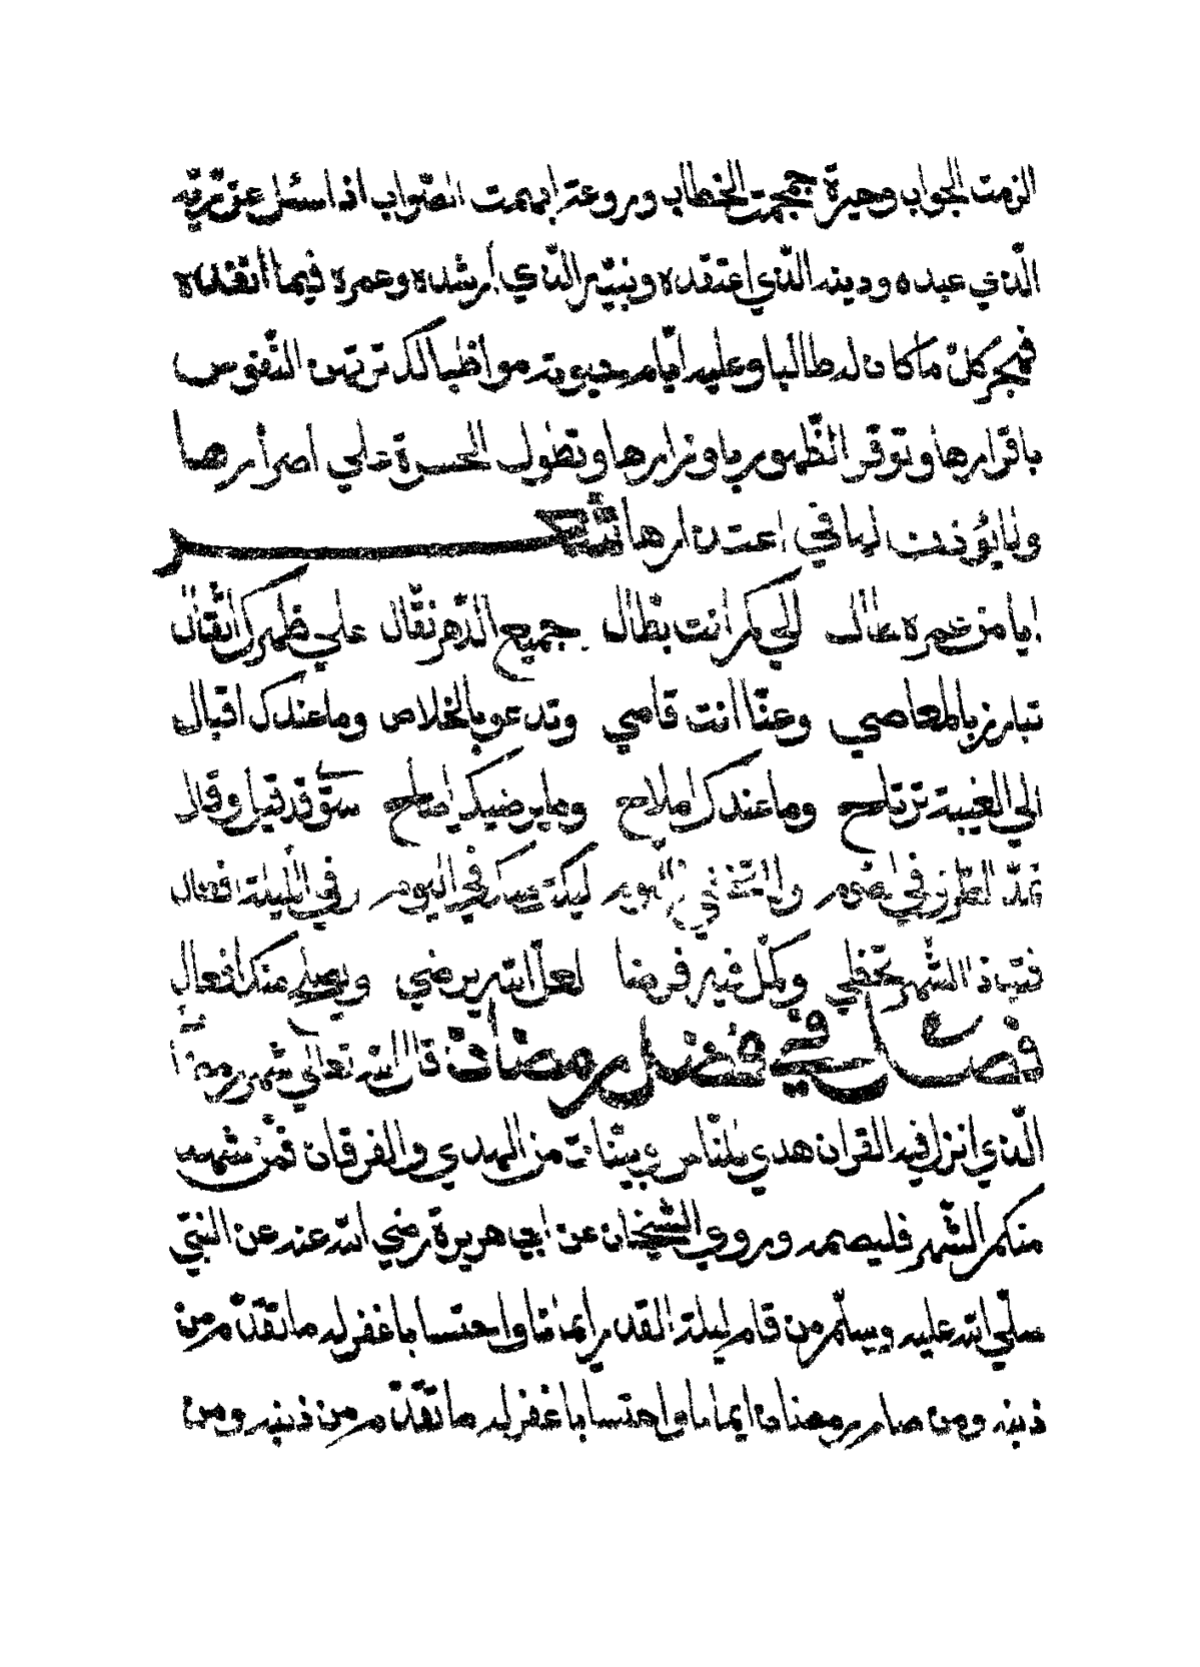 الزمت الجواب وحيرة جمجمت الخطاب وروعة ابهمت الصواب اذا سئل عن ربه
الّذي عبده ودينه الذي اعتقده ونبيّه الّذي أرشده وعمره فيما أنفده
فهجر كلّ ما كان له طالبا وعليه ايّام حيوته مواظبا لك ترتهن النّفوس
باقرارها وتوقر الظّهور باوزارها وتطول الحسرة على اصرارها
ولا يؤذن لها في اعتذارها شعر
ايا من عمره طال الى كم أنت بطّال جميع الدّهر نقّال على ظهرك اثقال
تبارز بالمعاصي وعنّا انت قاصي وتدعو بالخلاص وما عندك اقبال
الى الغيبة ترتاح وما عندك اصلاح وما يرضيك يا صاح سوى قد قيل وقال
تمدّ الطرف في الصوم في اليوم وفي الليلة افعال
الشّهر تحظى وكمّل فيه فرضا لعلّ الله يرضى ويصلح منك افعال
فصل في فضل رمضان قال الله تعالى شهر رمضان
الّذي انزل فيه القران هدى للنّاس وبيّنات من الهدى والفرقان فمن شهد
منكم الشّهر فليصمه وروى الشّيخان عن ابي هريرة رضي الله عنه عن النبيّ
صلّى الله عليه وسلّم من قام ليلة القدر أيمانا واحتسابا غفر له ما تقدّم من
ذنبه ومن صام رمضان ايمانا واحتسابا غفر له ما تقدّم من ذنبه ومن